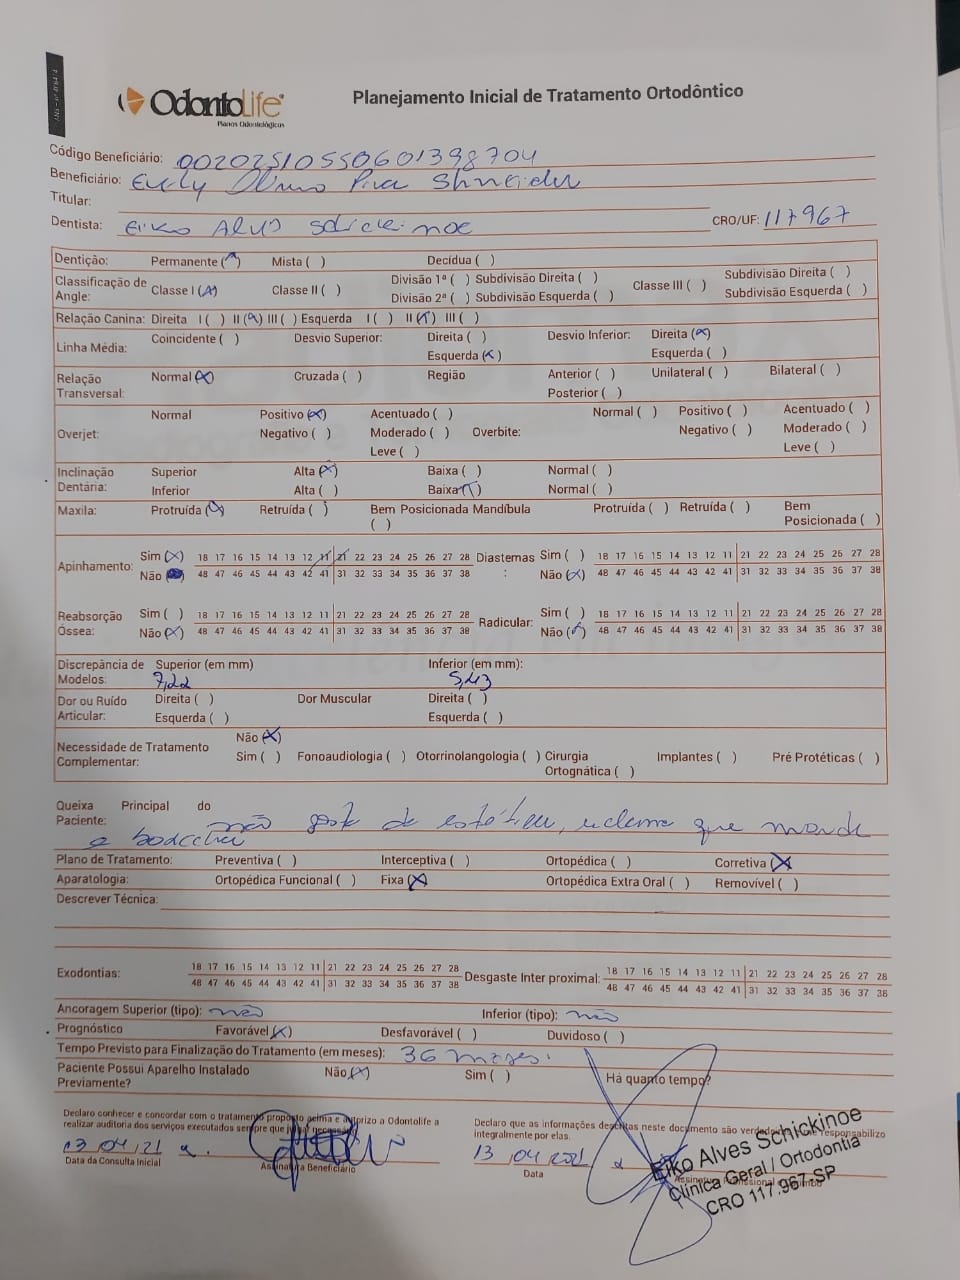 OdontoLife
Planos Odontológicos
Planejamento Inicial de Tratamento Ortodôntico
Código Beneficiário: 00202510550601398704
Beneficiário: Piva Shneider
Titular:
Dentista: Eiko Alves Schickinoe CRO/UF: 117967
Dentição: Permanente (x) Mista ( ) Decídua ( )
Classificação de Angle: Classe I (x) Classe II ( ) Divisão 1ª ( ) Subdivisão Direita ( ) Divisão 2ª ( ) Subdivisão Esquerda ( ) Classe III ( ) Subdivisão Direita ( ) Subdivisão Esquerda ( )
Relação Canina: Direita I ( ) II (x) III ( ) Esquerda I ( ) II (x) III ( )
Linha Média: Coincidente ( ) Desvio Superior: Direita ( ) Esquerda (x) Desvio Inferior: Direita (x) Esquerda ( )
Relação Transversal: Normal (x) Cruzada ( ) Região Anterior ( ) Posterior ( ) Unilateral ( ) Bilateral ( )
Overjet: Normal Positivo (x) Negativo ( ) Acentuado ( ) Moderado ( ) Leve ( ) Overbite: Normal ( ) Positivo ( ) Negativo ( ) Acentuado ( ) Moderado ( ) Leve ( )
Inclinação Dentária: Superior Alta (x) Baixa ( ) Normal ( )
Inferior Alta ( ) Baixa (x) Normal ( )
Maxila: Protruída (x) Retruída ( ) Bem Posicionada ( ) Mandíbula Protruída ( ) Retruída ( ) Bem Posicionada ( )
Apinhamento: Sim (x) 18 17 16 15 14 13 12 11 21 22 23 24 25 26 27 28 Diastemas: Sim ( ) 18 17 16 15 14 13 12 11 21 22 23 24 25 26 27 28
Não 48 47 46 45 44 43 42 41 31 32 33 34 35 36 37 38 Não (x) 48 47 46 45 44 43 42 41 31 32 33 34 35 36 37 38
Reabsorção Óssea: Sim ( ) 18 17 16 15 14 13 12 11 21 22 23 24 25 26 27 28 Radicular: Sim ( ) 18 17 16 15 14 13 12 11 21 22 23 24 25 26 27 28
Não (x) 48 47 46 45 44 43 42 41 31 32 33 34 35 36 37 38 Não (x) 48 47 46 45 44 43 42 41 31 32 33 34 35 36 37 38
Discrepância de Modelos: Superior (em mm) 7,22 Inferior (em mm): 5,43
Dor ou Ruído Articular: Direita ( ) Esquerda ( ) Dor Muscular Direita ( ) Esquerda ( )
Necessidade de Tratamento Complementar: Não (x)
Sim ( ) Fonoaudiologia ( ) Otorrinolangologia ( ) Cirurgia Ortognática ( ) Implantes ( ) Pré Protéticas ( )
Queixa Principal do Paciente: não gosta da estética, reclama que morde
a bochecha
Plano de Tratamento: Preventiva ( ) Interceptiva ( ) Ortopédica ( ) Corretiva (x)
Aparatologia: Ortopédica Funcional ( ) Fixa (x) Ortopédica Extra Oral ( ) Removível ( )
Descrever Técnica:
Exodontias: 18 17 16 15 14 13 12 11 21 22 23 24 25 26 27 28 Desgaste Inter proximal: 18 17 16 15 14 13 12 11 21 22 23 24 25 26 27 28
48 47 46 45 44 43 42 41 31 32 33 34 35 36 37 38 48 47 46 45 44 43 42 41 31 32 33 34 35 36 37 38
Ancoragem Superior (tipo): não Inferior (tipo): não
Prognóstico Favorável (x) Desfavorável ( ) Duvidoso ( )
Tempo Previsto para Finalização do Tratamento (em meses): 36 meses.
Paciente Possui Aparelho Instalado Previamente? Não (x) Sim ( ) Há quanto tempo?
Declaro conhecer e concordar com o tratamento proposto acima e autorizo a Odontolife a
realizar auditoria dos serviços executados sempre que julgar necessário.
Declaro que as informações descritas neste documento são verdadeiras e me responsabilizo
integralmente por elas.
13/04/21
Data da Consulta Inicial
Assinatura Beneficiário
13/04/2021
Data
Assinatura Profissional e Carimbo
Eiko Alves Schickinoe
Clínica Geral / Ortodontia
CRO 117.967-SP